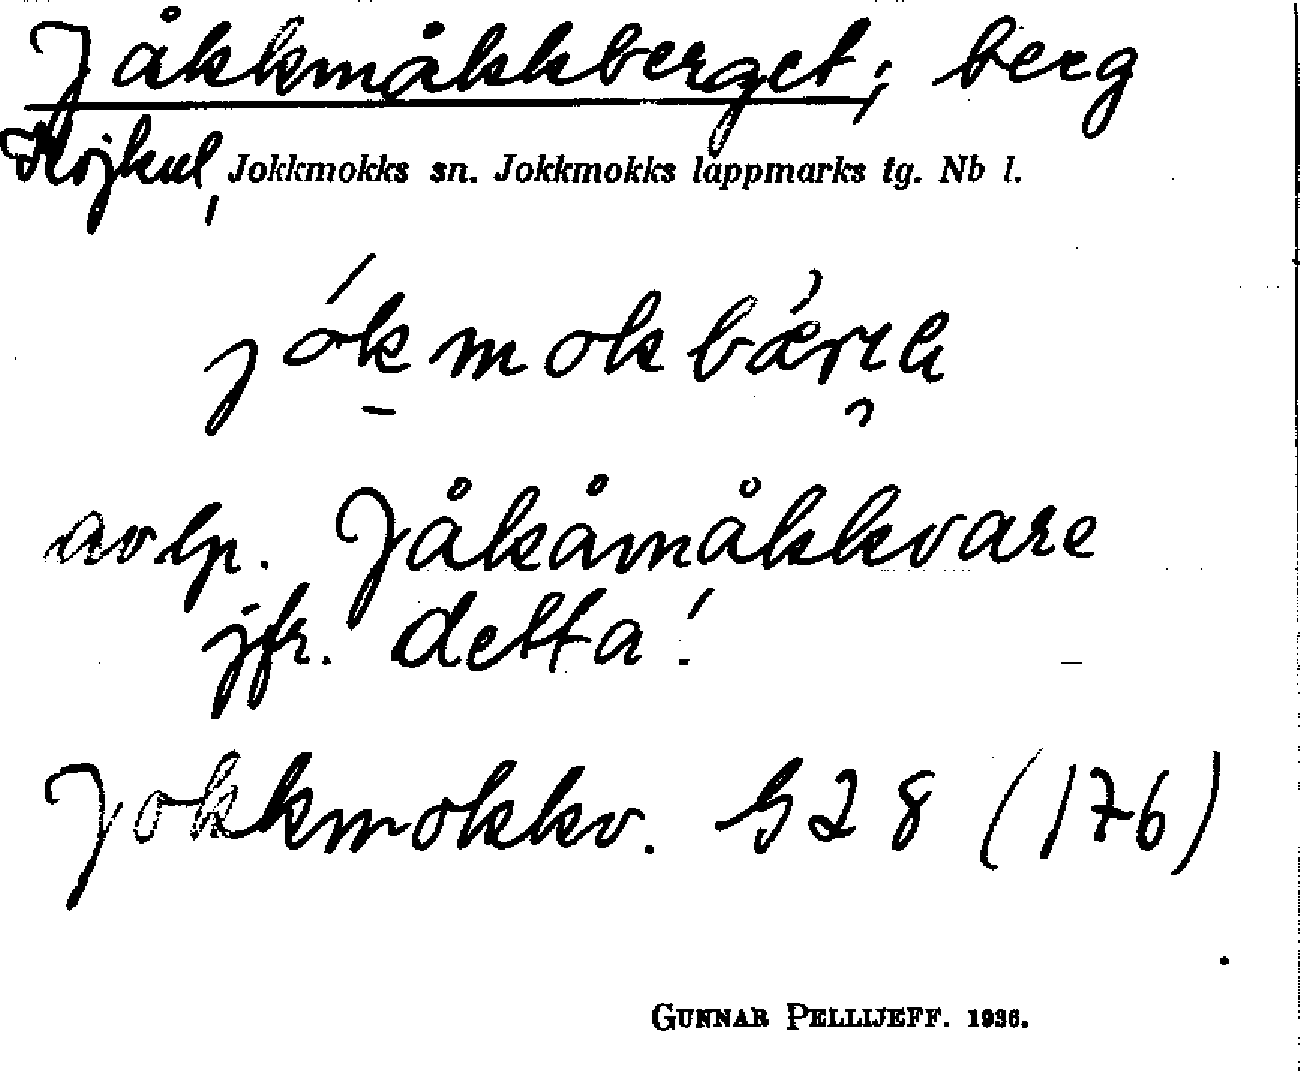 Jåkkmåkkberget; berg
Jokkmokks sn. Jokkmokks lappmarks tg. Nb l.
av lp. Jåkåmåkkvare
jfr. detta!
Jokkmokkv. G28 (176)
GUNNAR PELLIJEFF. 1936.